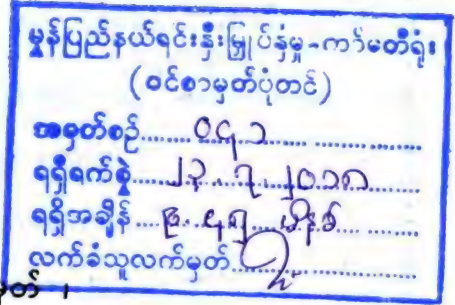 မွန်ပြည်နယ်ရင်းနှီးမြှုပ်နှံမှု-ကော်မတီရုံး
(ဝင်စာမှတ်ပုံတင်)
အမှတ်စဉ်......၀၄၁......
ရရှိရက်စွဲ......၂၃.၇.၂၀၁၈......
ရရှိအချိန်......မိနစ်......
လက်ခံသူလက်မှတ်......
မှတ် ၊